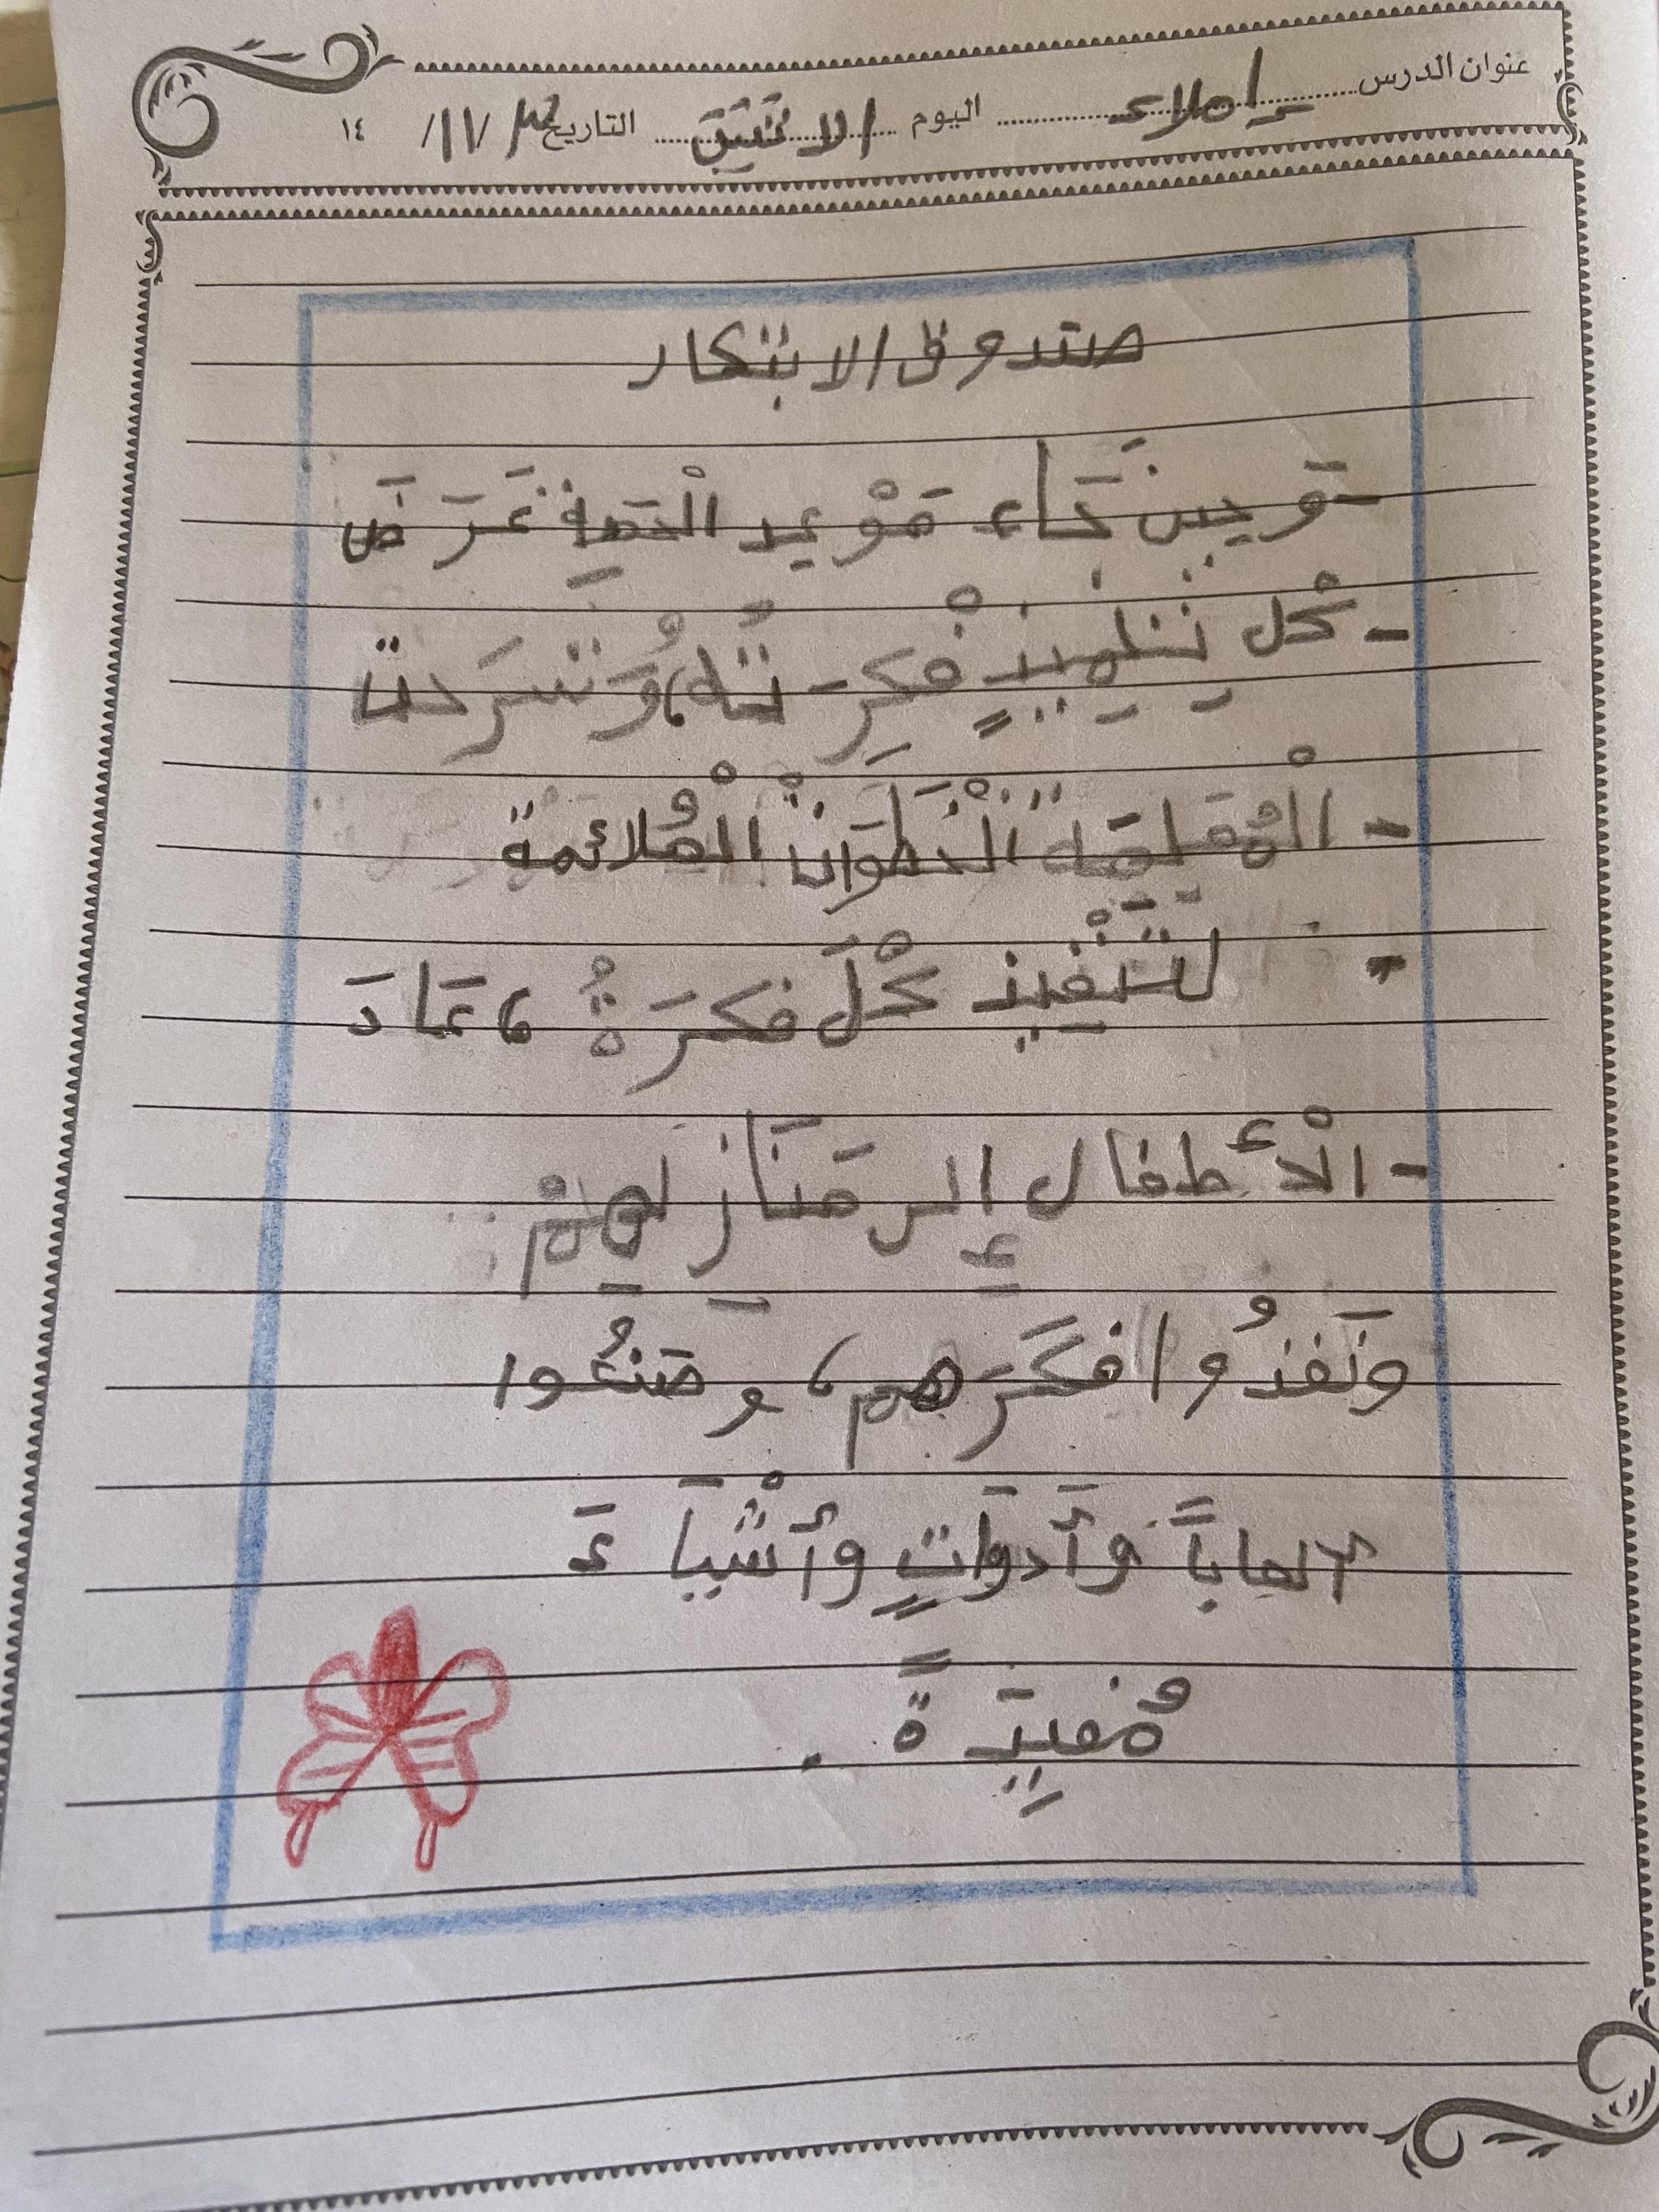 عنوان الدرس املاء اليوم الاثنين التاريخ ٣/١١/ ١٤
صندوق الابتكار
- وَحين جَاءَ مَوْعِد الْحصةِ عَرَضَ
- كُل تِلمِيذٍ فِكرَتُهُ، وَشرَحت
- الْمُعَلِمَة الْخطَواتْ الْمُلائمة
- لتَنْفيذ كُلَّ فكرَةُ، عَادَ
- الْأطفال إِلى مَنَازِلهِمْ
وَنَفذُوا فكَرَهم، وصَنعُوا
العاباً وَأَدوَاتٍ وأَشْيَاءَ
مُفيِدَةً .